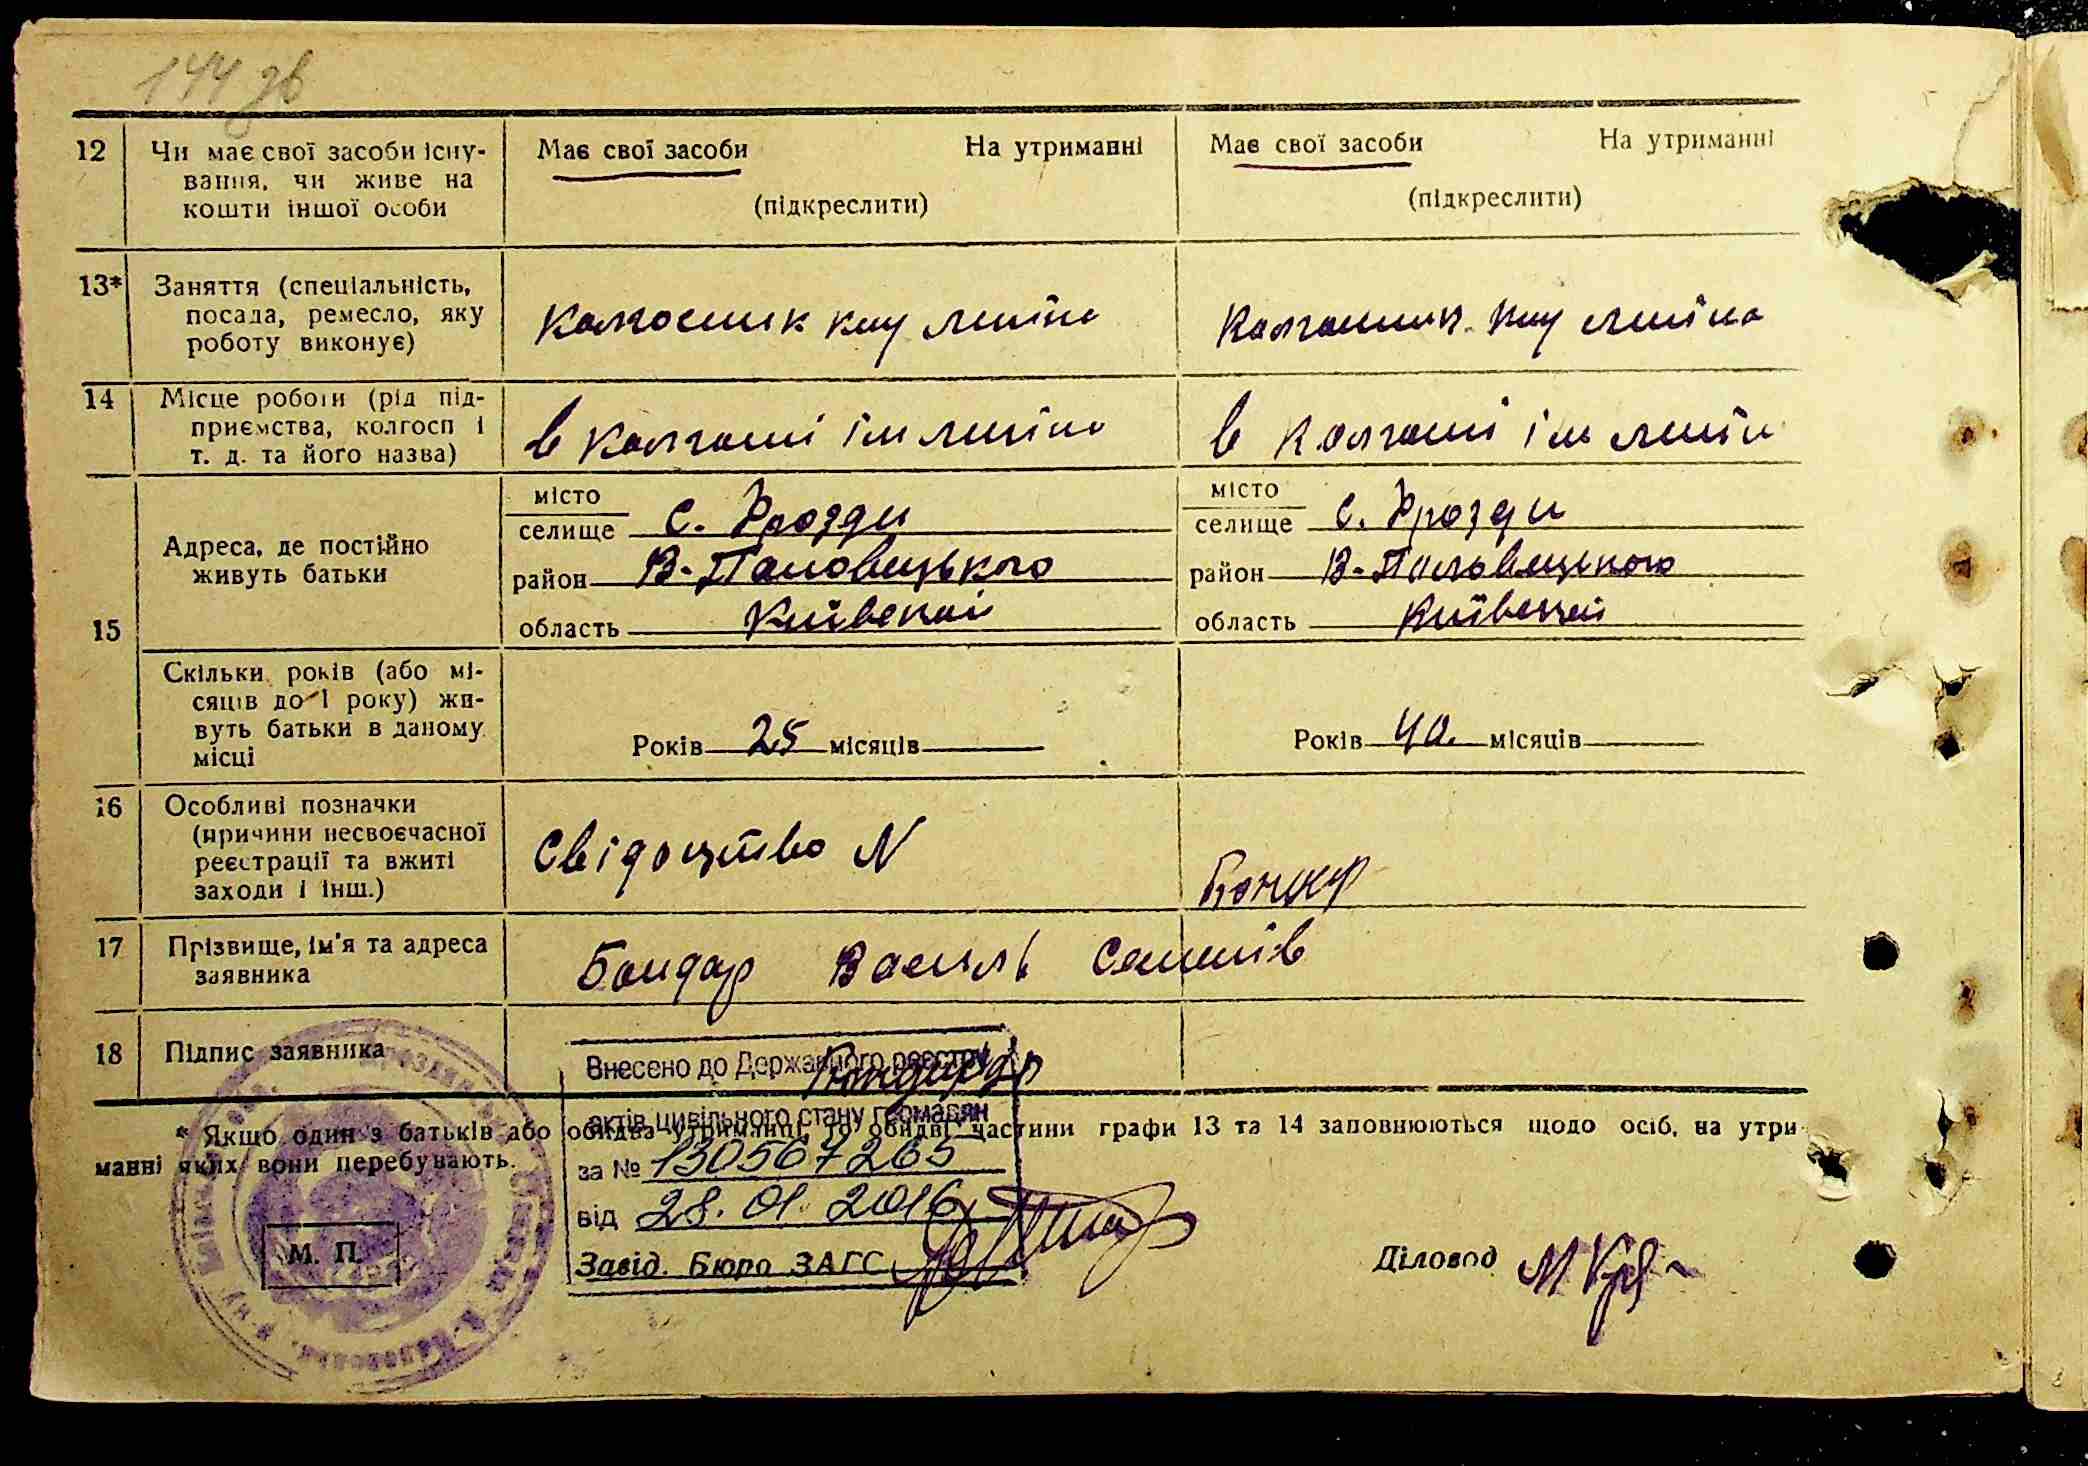 144 зв
12
Чи має свої засоби існу-
вання, чи живе на
кошти іншої особи
Має свої засоби На утриманні
(підкреслити)
Має свої засоби На утриманні
(підкреслити)
13*
Заняття (спеціальність,
посада, ремесло, яку
роботу виконує)
Колгосник
Колгошник
14
Місце роботи (рід під-
приємства, колгосп і
т. д. та його назва)
в колгоспі ім леніна
в колгоспі ім леніна
15
Адреса, де постійно
живуть батьки
місто
селище с. Дрозди
район В-Половецького
область Київської
місто
селище с. Дрозди
район В-Половецького
область Київської
Скільки років (або мі-
сяців до 1 року) жи-
вуть батьки в даному
місці
Років 25 місяців
Років 40. місяців
16
Особливі позначки
(причини несвоєчасної
реєстрації та вжиті
заходи і інш.)
Свідоцтво N
Бондар
17
Прізвище, ім'я та адреса
заявника
Бондар Василь
18
Підпис заявника
Бондар
Внесено до Державного реєстру
актів цивільного стану громадян
за № 130567265
від 28.01.2016
Завід. Бюро ЗАГС
* Якщо один з батьків або обидва утриманці, то обидві частини графи 13 та 14 заповнюються щодо осіб, на утри-
манні яких вони перебувають.
М. П.
Діловод